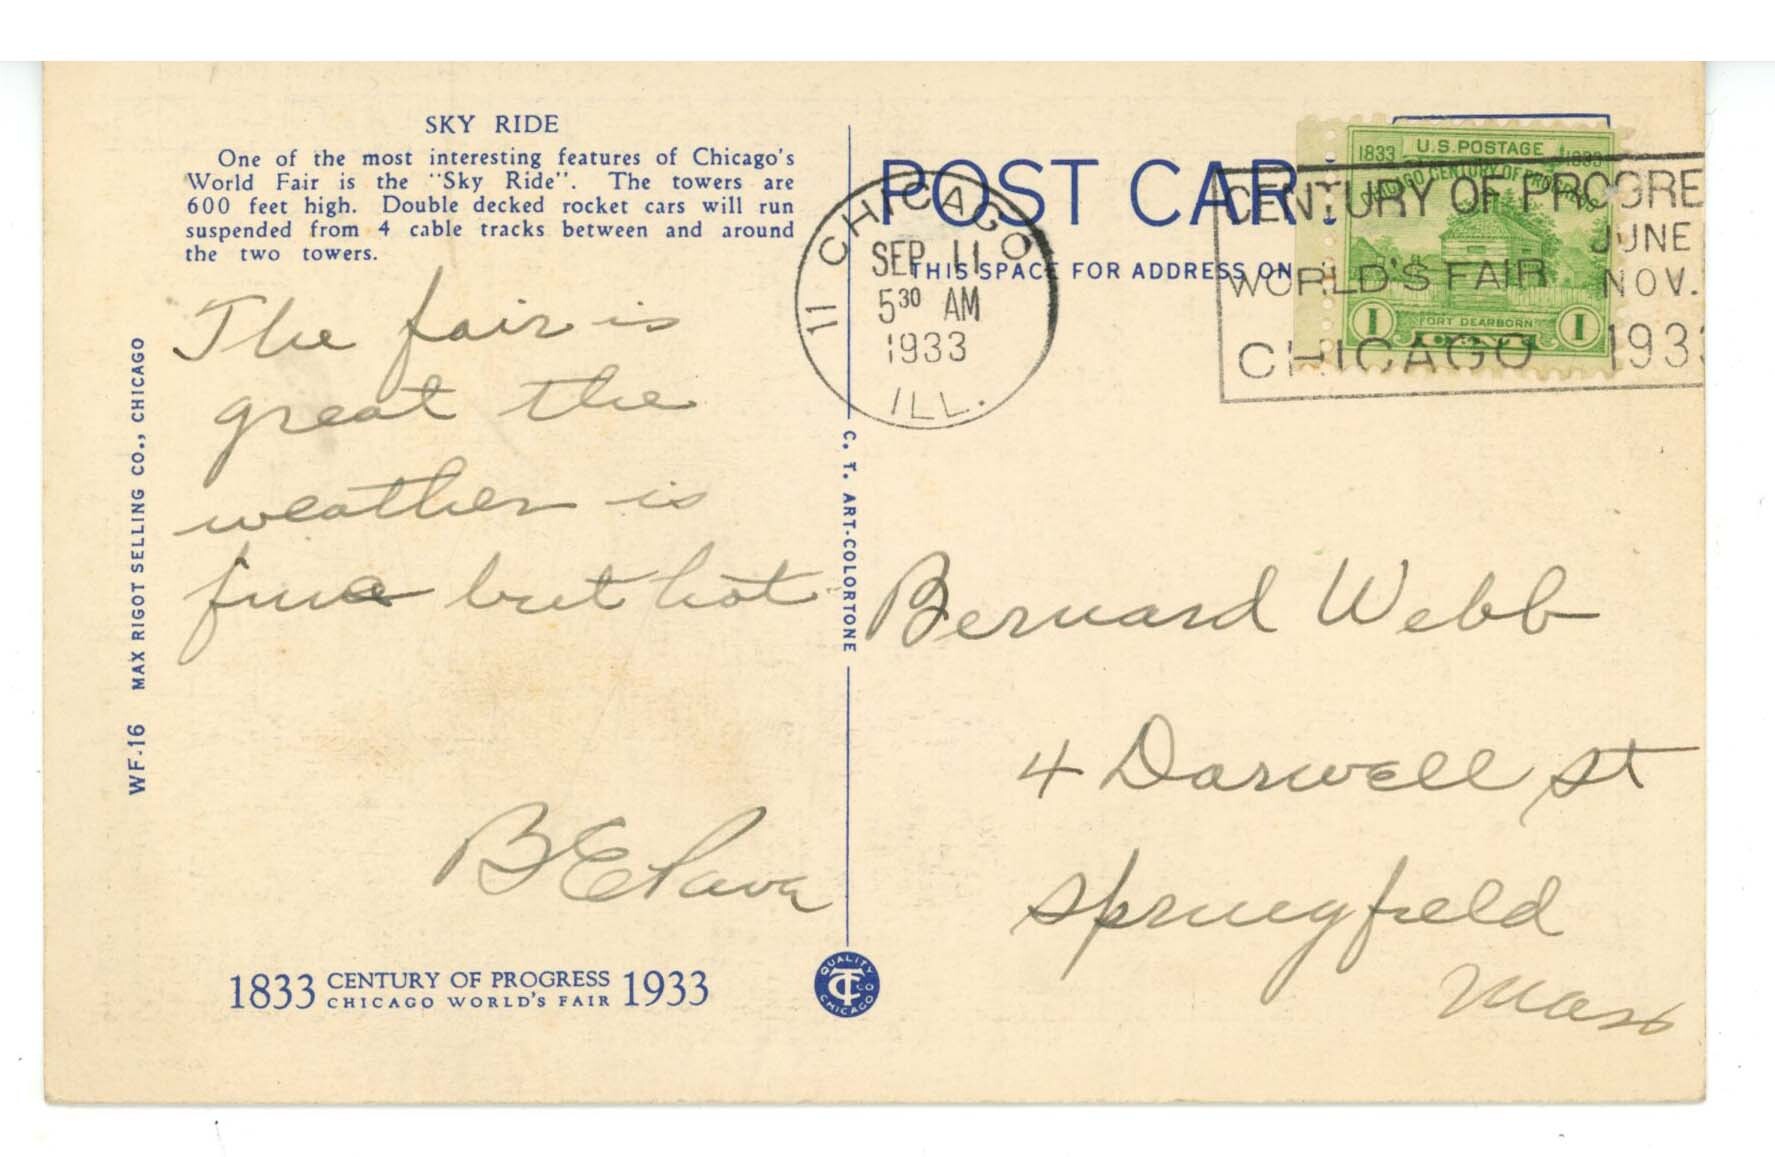 SKY RIDE
One of the most interesting features of Chicago's
World Fair is the "Sky Ride". The towers are
600 feet high. Double decked rocket cars will run
suspended from 4 cable tracks between and around
the two towers.
The fair is
great the
weather is
fine but hot
B E
1833 CENTURY OF PROGRESS 1933
CHICAGO WORLD'S FAIR
WF-16 MAX RIGOT SELLING CO., CHICAGO
C. T. ART-COLORTONE
QUALITY
CT CO
CHICAGO
POST CAR
THIS SPACE FOR ADDRESS ON
11 CHICAGO
SEP 11
5 30 AM
1933
ILL.
U.S. POSTAGE
1833 1933
CHICAGO CENTURY OF PROGRESS
FORT DEARBORN
1 CENT 1
CENTURY OF PROGRE
JUNE
WORLD'S FAIR NOV.
CHICAGO 1933
Bernard Webb
4 Darwell St
Springfield
Mass